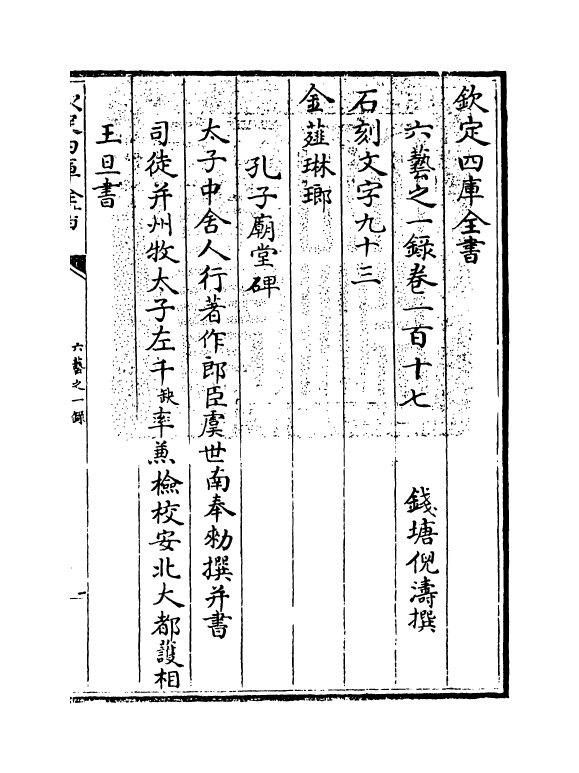 欽定四庫全書
六藝之一錄卷一百十七
錢塘倪濤撰
石刻文字九十三
金薤琳瑯
孔子廟堂碑
太子中舍人行著作郎臣虞世南奉勑撰并書
司徒并州牧太子左千缺率兼檢校安北大都護相
王旦書
六藝之一錄
一